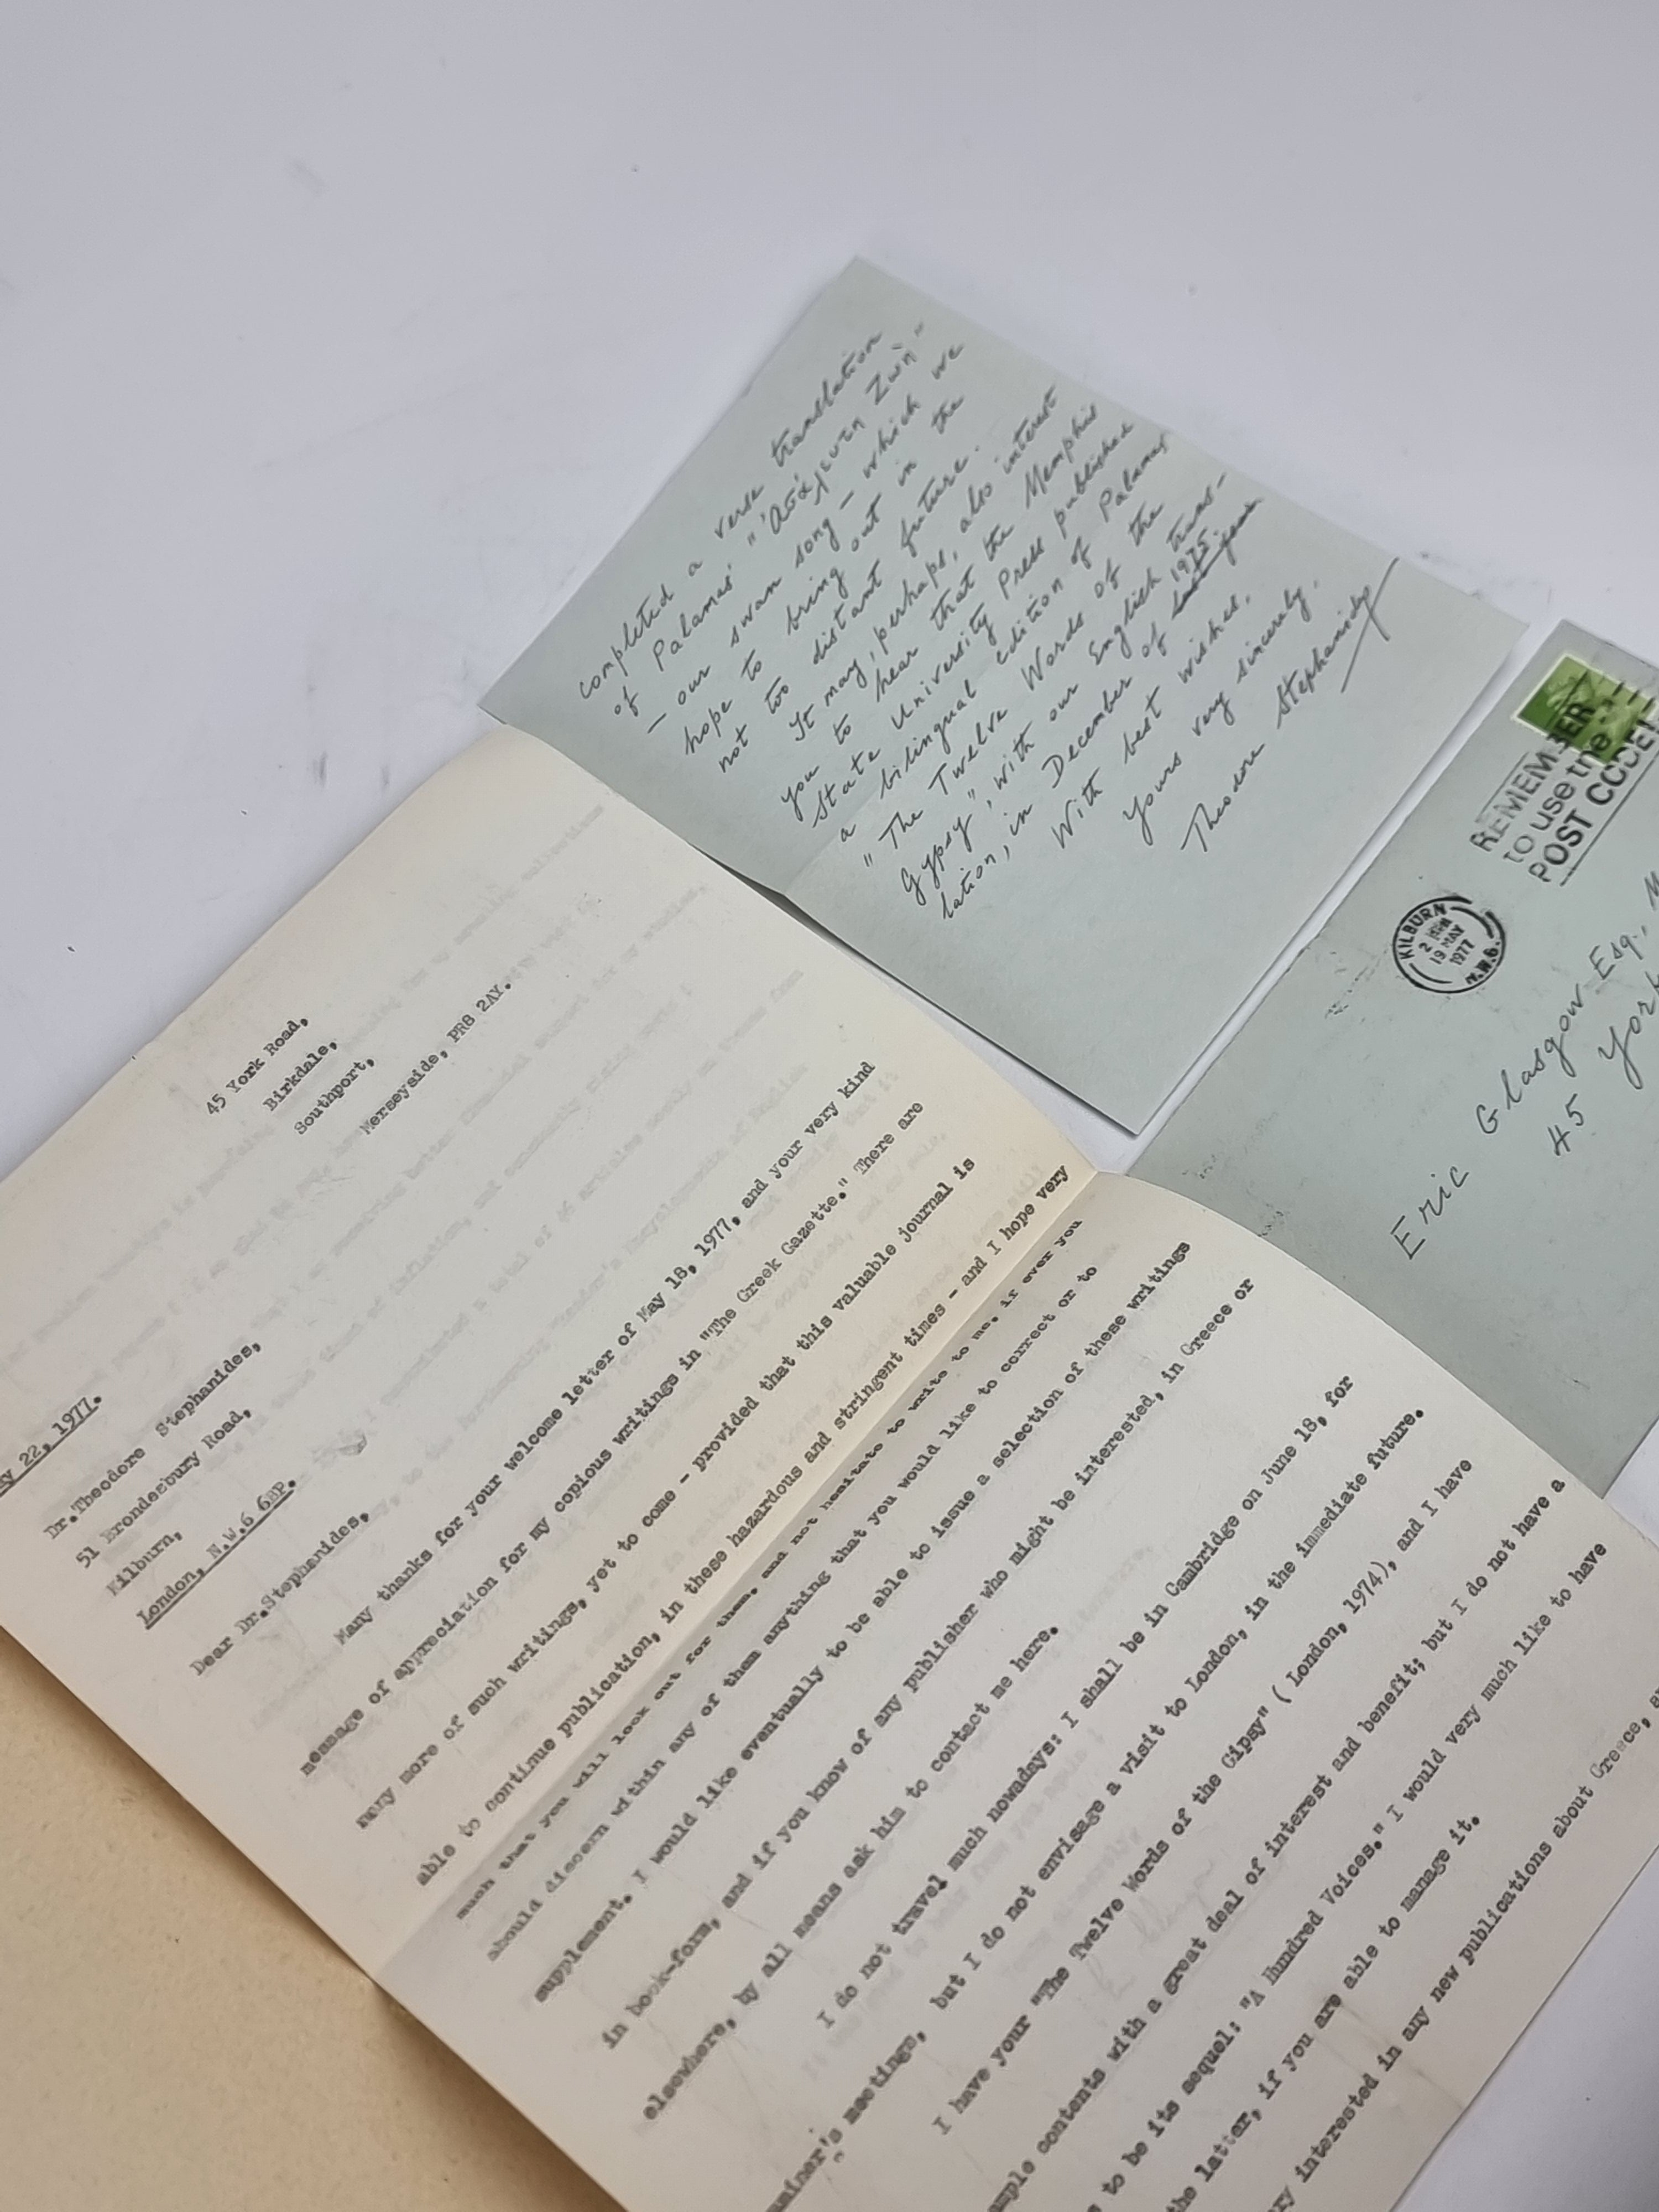 completed a verse translation
of Palamas' "Ἀσάλευτη Ζωή"
— our swan song — which we
hope to bring out in the
not too distant future.
It may, perhaps, also interest
you to hear that the Memphis
State University Press published
a bilingual edition of Palamas'
"The Twelve Words of the
Gypsy", with our English trans-
lation, in December of 1975.
With best wishes,
Yours very sincerely,
Theodore Stephanides
REMEMBER
to use the
POST CODE
KILBURN
19 MAY
1977
N.W.6.
Eric Glasgow Esq.,
45 York
45 York Road,
Birkdale,
Southport,
Merseyside, PR8 2AY.
22, 1977.
Dr.Theodore Stephanides,
51 Brondesbury Road,
Kilburn,
London, N.W.6 6BP.
Dear Dr.Stephanides,
Many thanks for your welcome letter of May 18, 1977, and your very kind
message of appreciation for my copious writings in "The Greek Gazette." There are
many more of such writings, yet to come - provided that this valuable journal is
able to continue publication, in these hazardous and stringent times - and I hope very
much that you will look out for them, and not hesitate to write to me, if ever you
should discern within any of them anything that you would like to correct or to
supplement. I would like eventually to be able to issue a selection of these writings
in book-form, and if you know of any publisher who might be interested, in Greece or
elsewhere, by all means ask him to contact me here.
I do not travel much nowadays: I shall be in Cambridge on June 18, for
meetings, but I do not envisage a visit to London, in the immediate future.
I have your "The Twelve Words of the Gipsy" ( London, 1974), and I have
contents with a great deal of interest and benefit; but I do not have a
to be its sequel: "A Hundred Voices." I would very much like to have
the latter, if you are able to manage it.
interested in any new publications about Greece,